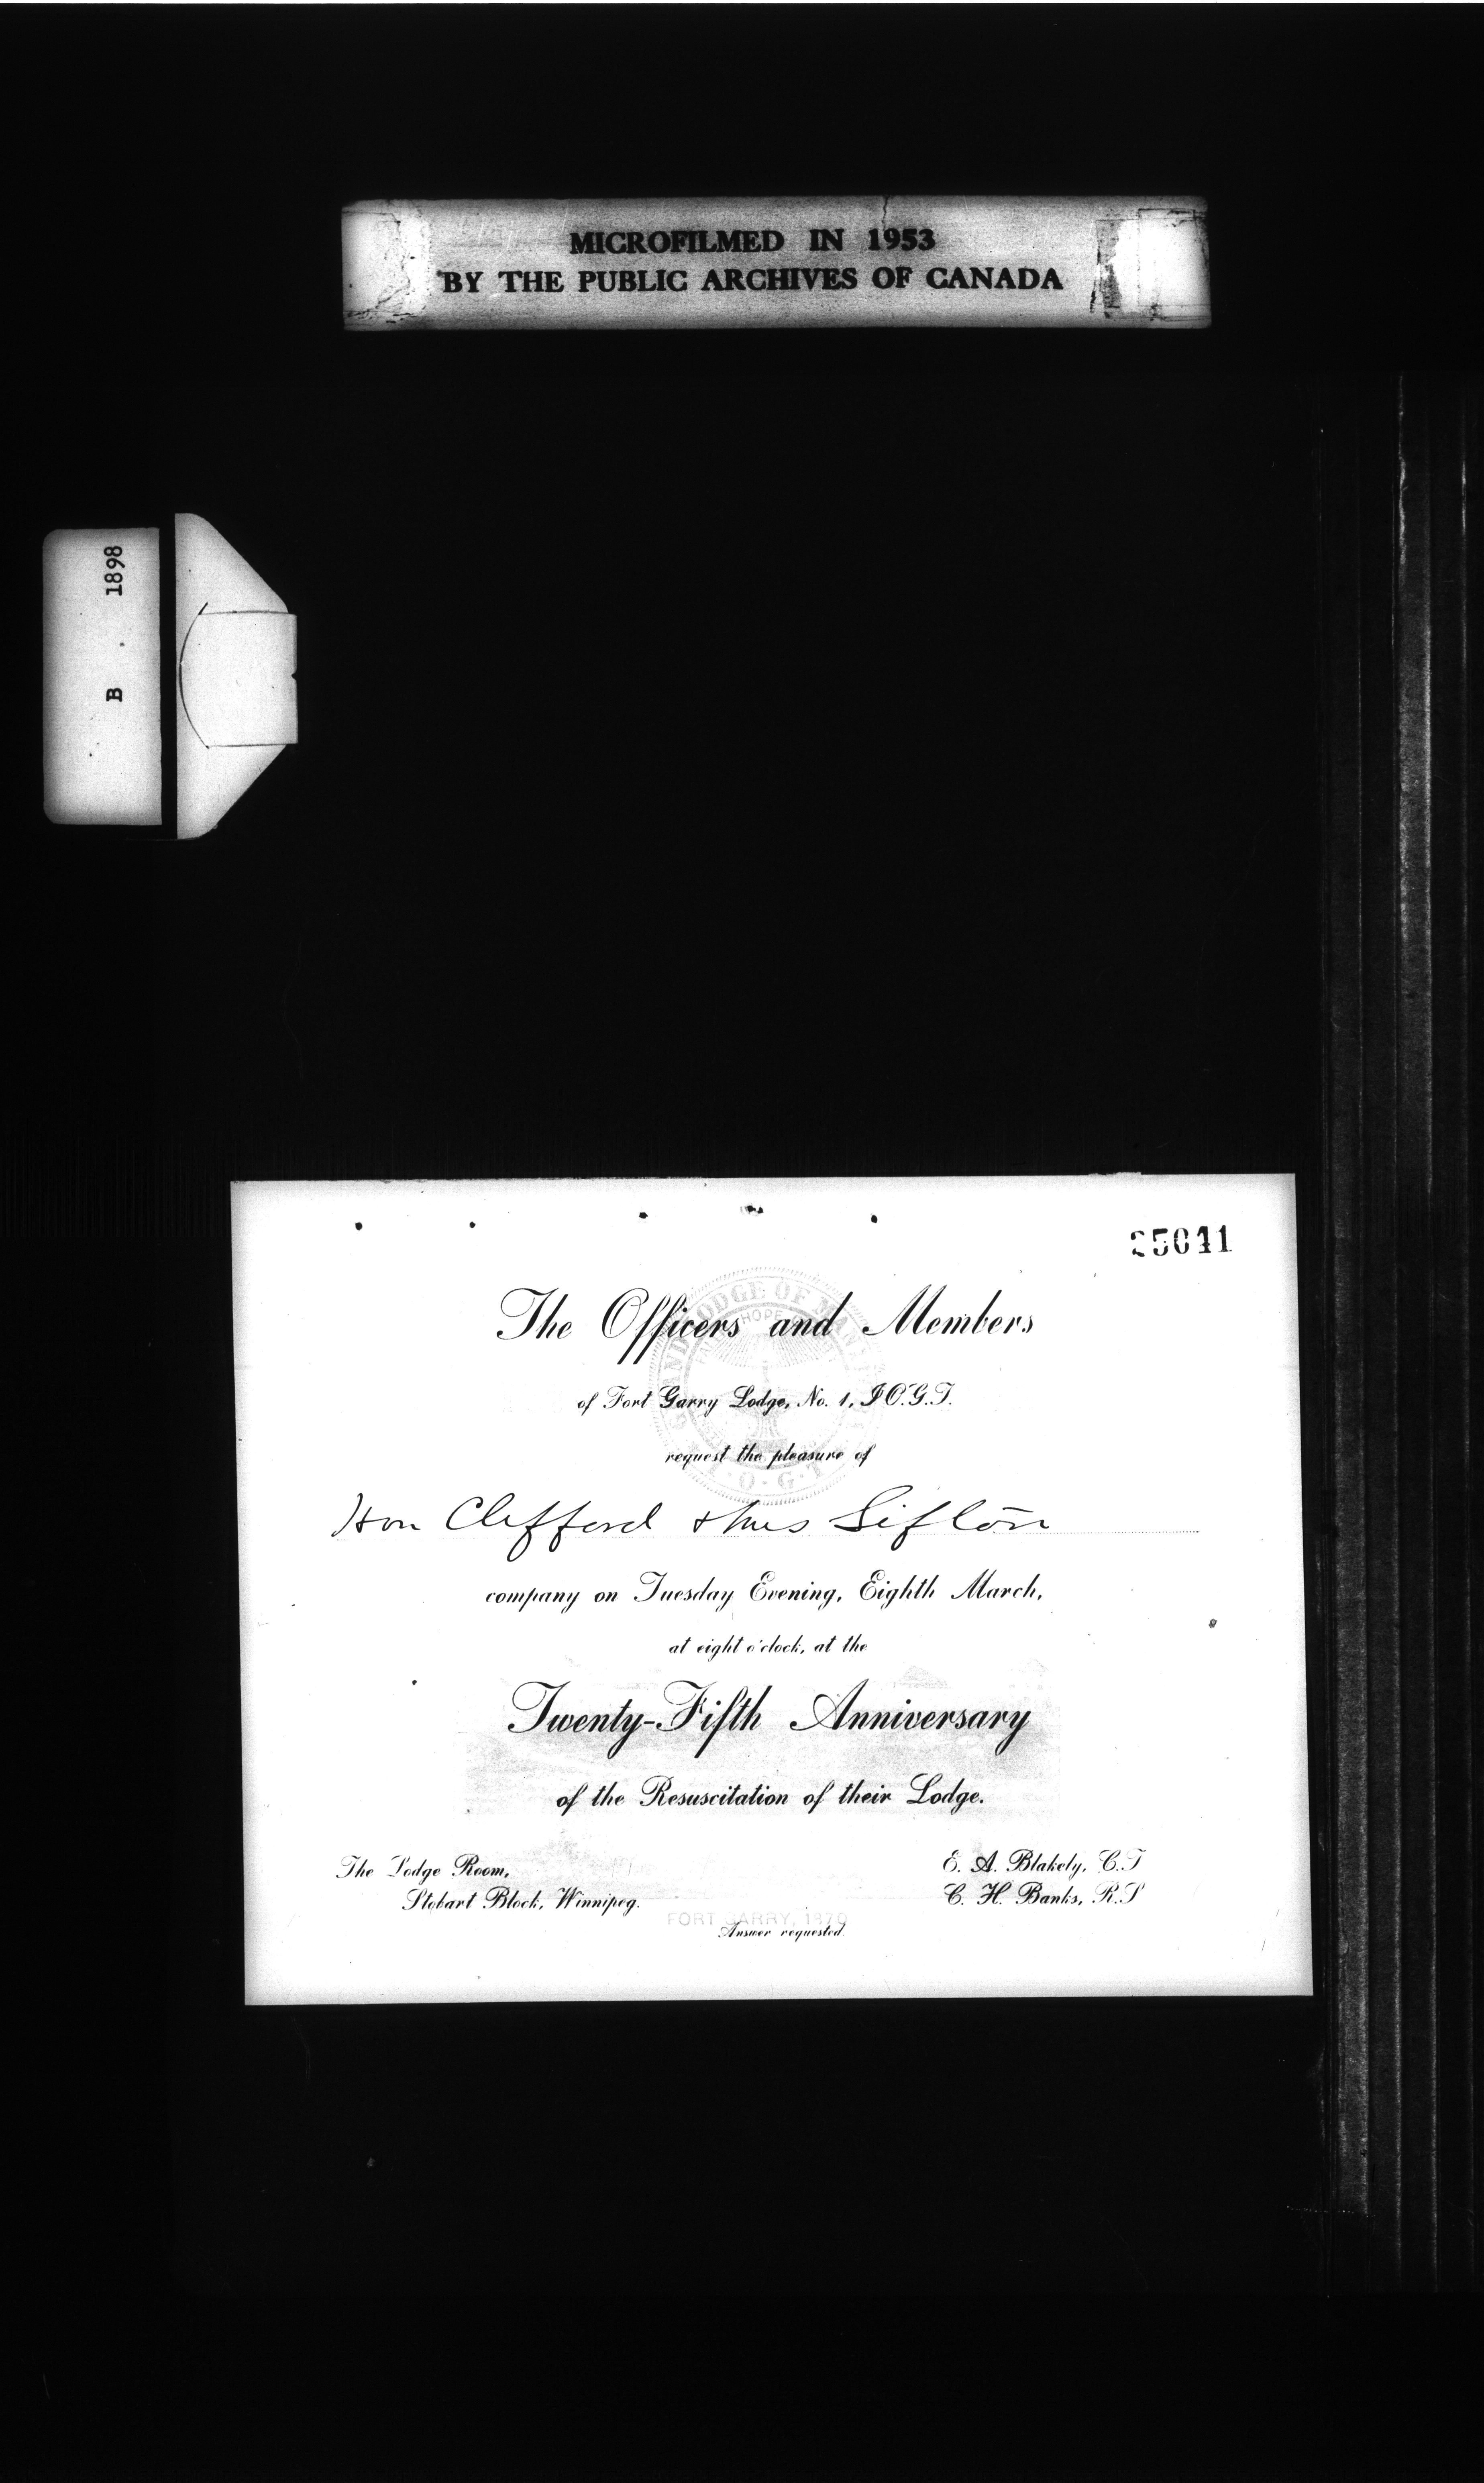 MICROFILMED IN 1953
BY THE PUBLIC ARCHIVES OF CANADA
B . 1898
The Officers and Members
of Fort Garry Lodge, No. 1, I O.G.T.
request the pleasure of
Hon Clifford & Mrs Sifton
company on Tuesday Evening, Eighth March,
at eight o'clock, at the
Twenty-Fifth Anniversary
of the Resuscitation of their Lodge.
The Lodge Room,
Stobart Block, Winnipeg.
E. A. Blakely, C.T
C. H. Banks, R.S
FORT GARRY, 1870
Answer requested.